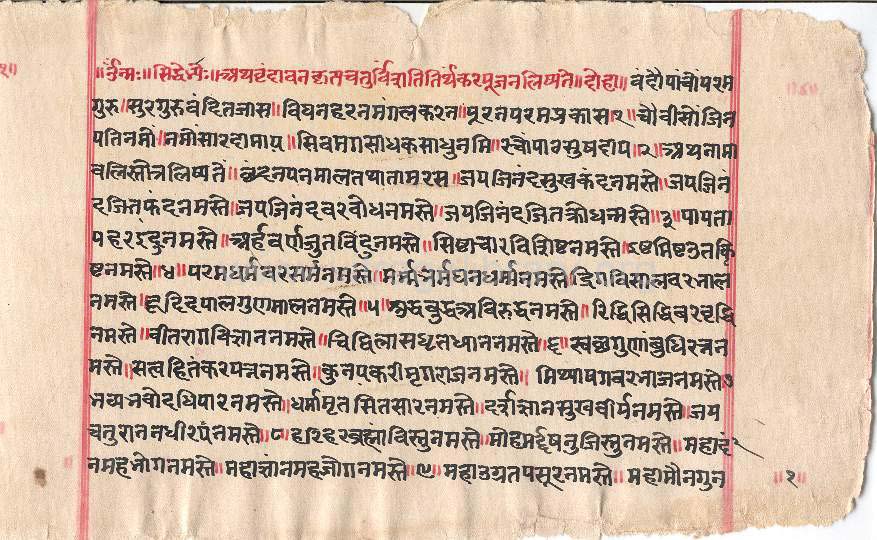 ॥र्ँनमः॥सिद्धेभ्यैः॥अथवृंदावनकृतचतुर्विंशतितिर्थंकरपूजनलिष्यते॥दोहा॥वंदौपांचौंपरम
गुरु॥सुरगुरुवंदितजास॥विघनहरनमंगलकरन॥पूरनपरमप्रकास१॥चौवीसौंजिन
पतिनमौ॥नमौंसारदामाय॥सिवमगसाधकसाधुनमि॥रचौंपाठसुषदाय॥२॥अथनामा
वलिस्तोत्रलिष्यते॥छंदनयनमालतथातामरस॥जयजिनंदसुखकंदनमस्ते॥जयजिनं
दजितफंदनमस्ते॥जयजिनंदवरवोधनमस्ते॥जयजिनंदजितक्रोधनमस्ते॥३॥पापता
पहरइंदुनमस्ते॥अर्हवर्णजुतविंदुनमस्ते॥सिष्टाचारविशिष्टनमस्ते॥इष्टमिष्टउतकृ
ष्टनमस्ते॥४॥परमधर्मवरसर्मनमस्ते॥मर्मभर्मघनधर्मनमस्ते॥द्रिगविसालवरभाल
नमस्ते॥हृदिदयालगुणमालनमस्ते॥५॥शुद्धवुद्धअविरुद्धनमस्ते॥रिद्धिसिद्धिवरवृद्धि
नमस्ते॥वीतरागविज्ञाननमस्ते॥चिद्विलासधृतध्याननमस्ते॥६॥स्वछगुणांवुधिरत्नन
मस्ते॥सत्वहितंकरयत्ननमस्ते॥कुनयकरीमृगराजनमस्ते॥मिथ्याषगवरवाजनमस्ते७
भव्यभवोदधिपारनमस्ते॥धर्मामृतसितसारनमस्ते॥दर्शज्ञानसुखवीर्यनमस्ते॥जय
चतुराननधीरयंनमस्ते॥८॥हरिहरब्रह्माविस्नुनमस्ते॥मोहमर्द्दषनुजिस्नुनमस्ते॥महादं
नमहभोगनमस्ते॥महाज्ञानमहजोगनमस्ते॥९॥महाउग्रतपसूरनमस्ते॥महामौनगुन
॥१॥